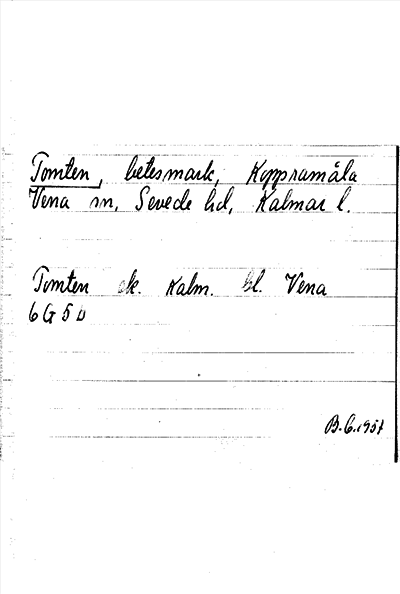 Tomten, betesmark, Koppramåla
Vena sn, Sevede hd, Kalmar l.
Tomten ek. Kalm. bl. Vena
6 G 5 b
B. C. 1957